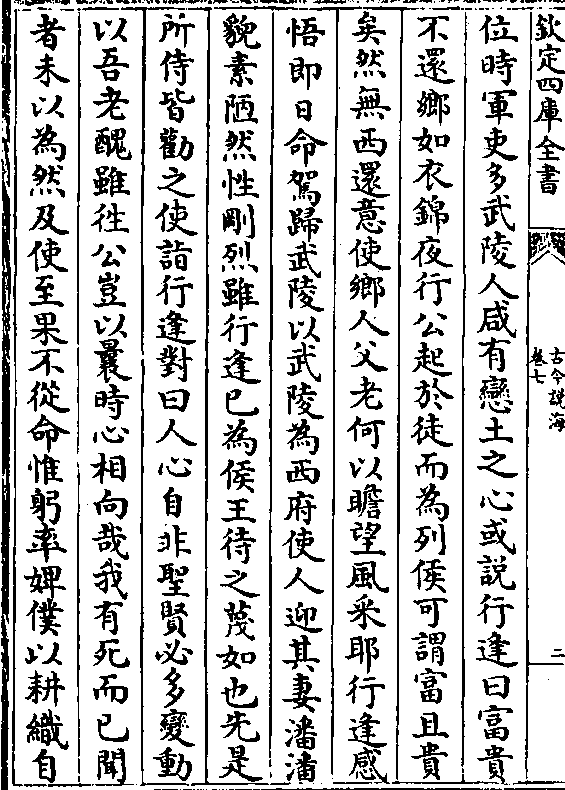 欽定四庫全書
古今說海
卷七
二
位時軍吏多武陵人咸有戀土之心或說行逢曰富貴
不還鄉如衣錦夜行公起於徒而為列侯可謂富且貴
矣然無西還意使鄉人父老何以瞻望風采耶行逢感
悟即日命駕歸武陵以武陵為西府使人迎其妻潘潘
貌素陋然性剛烈雖行逢已為侯王待之蔑如也先是
所侍皆勸之使詣行逢對曰人心自非聖賢必多變動
以吾老醜雖徃公豈以曩時心相向哉我有死而已聞
者未以為然及使至果不從命惟躬率婢僕以耕織自